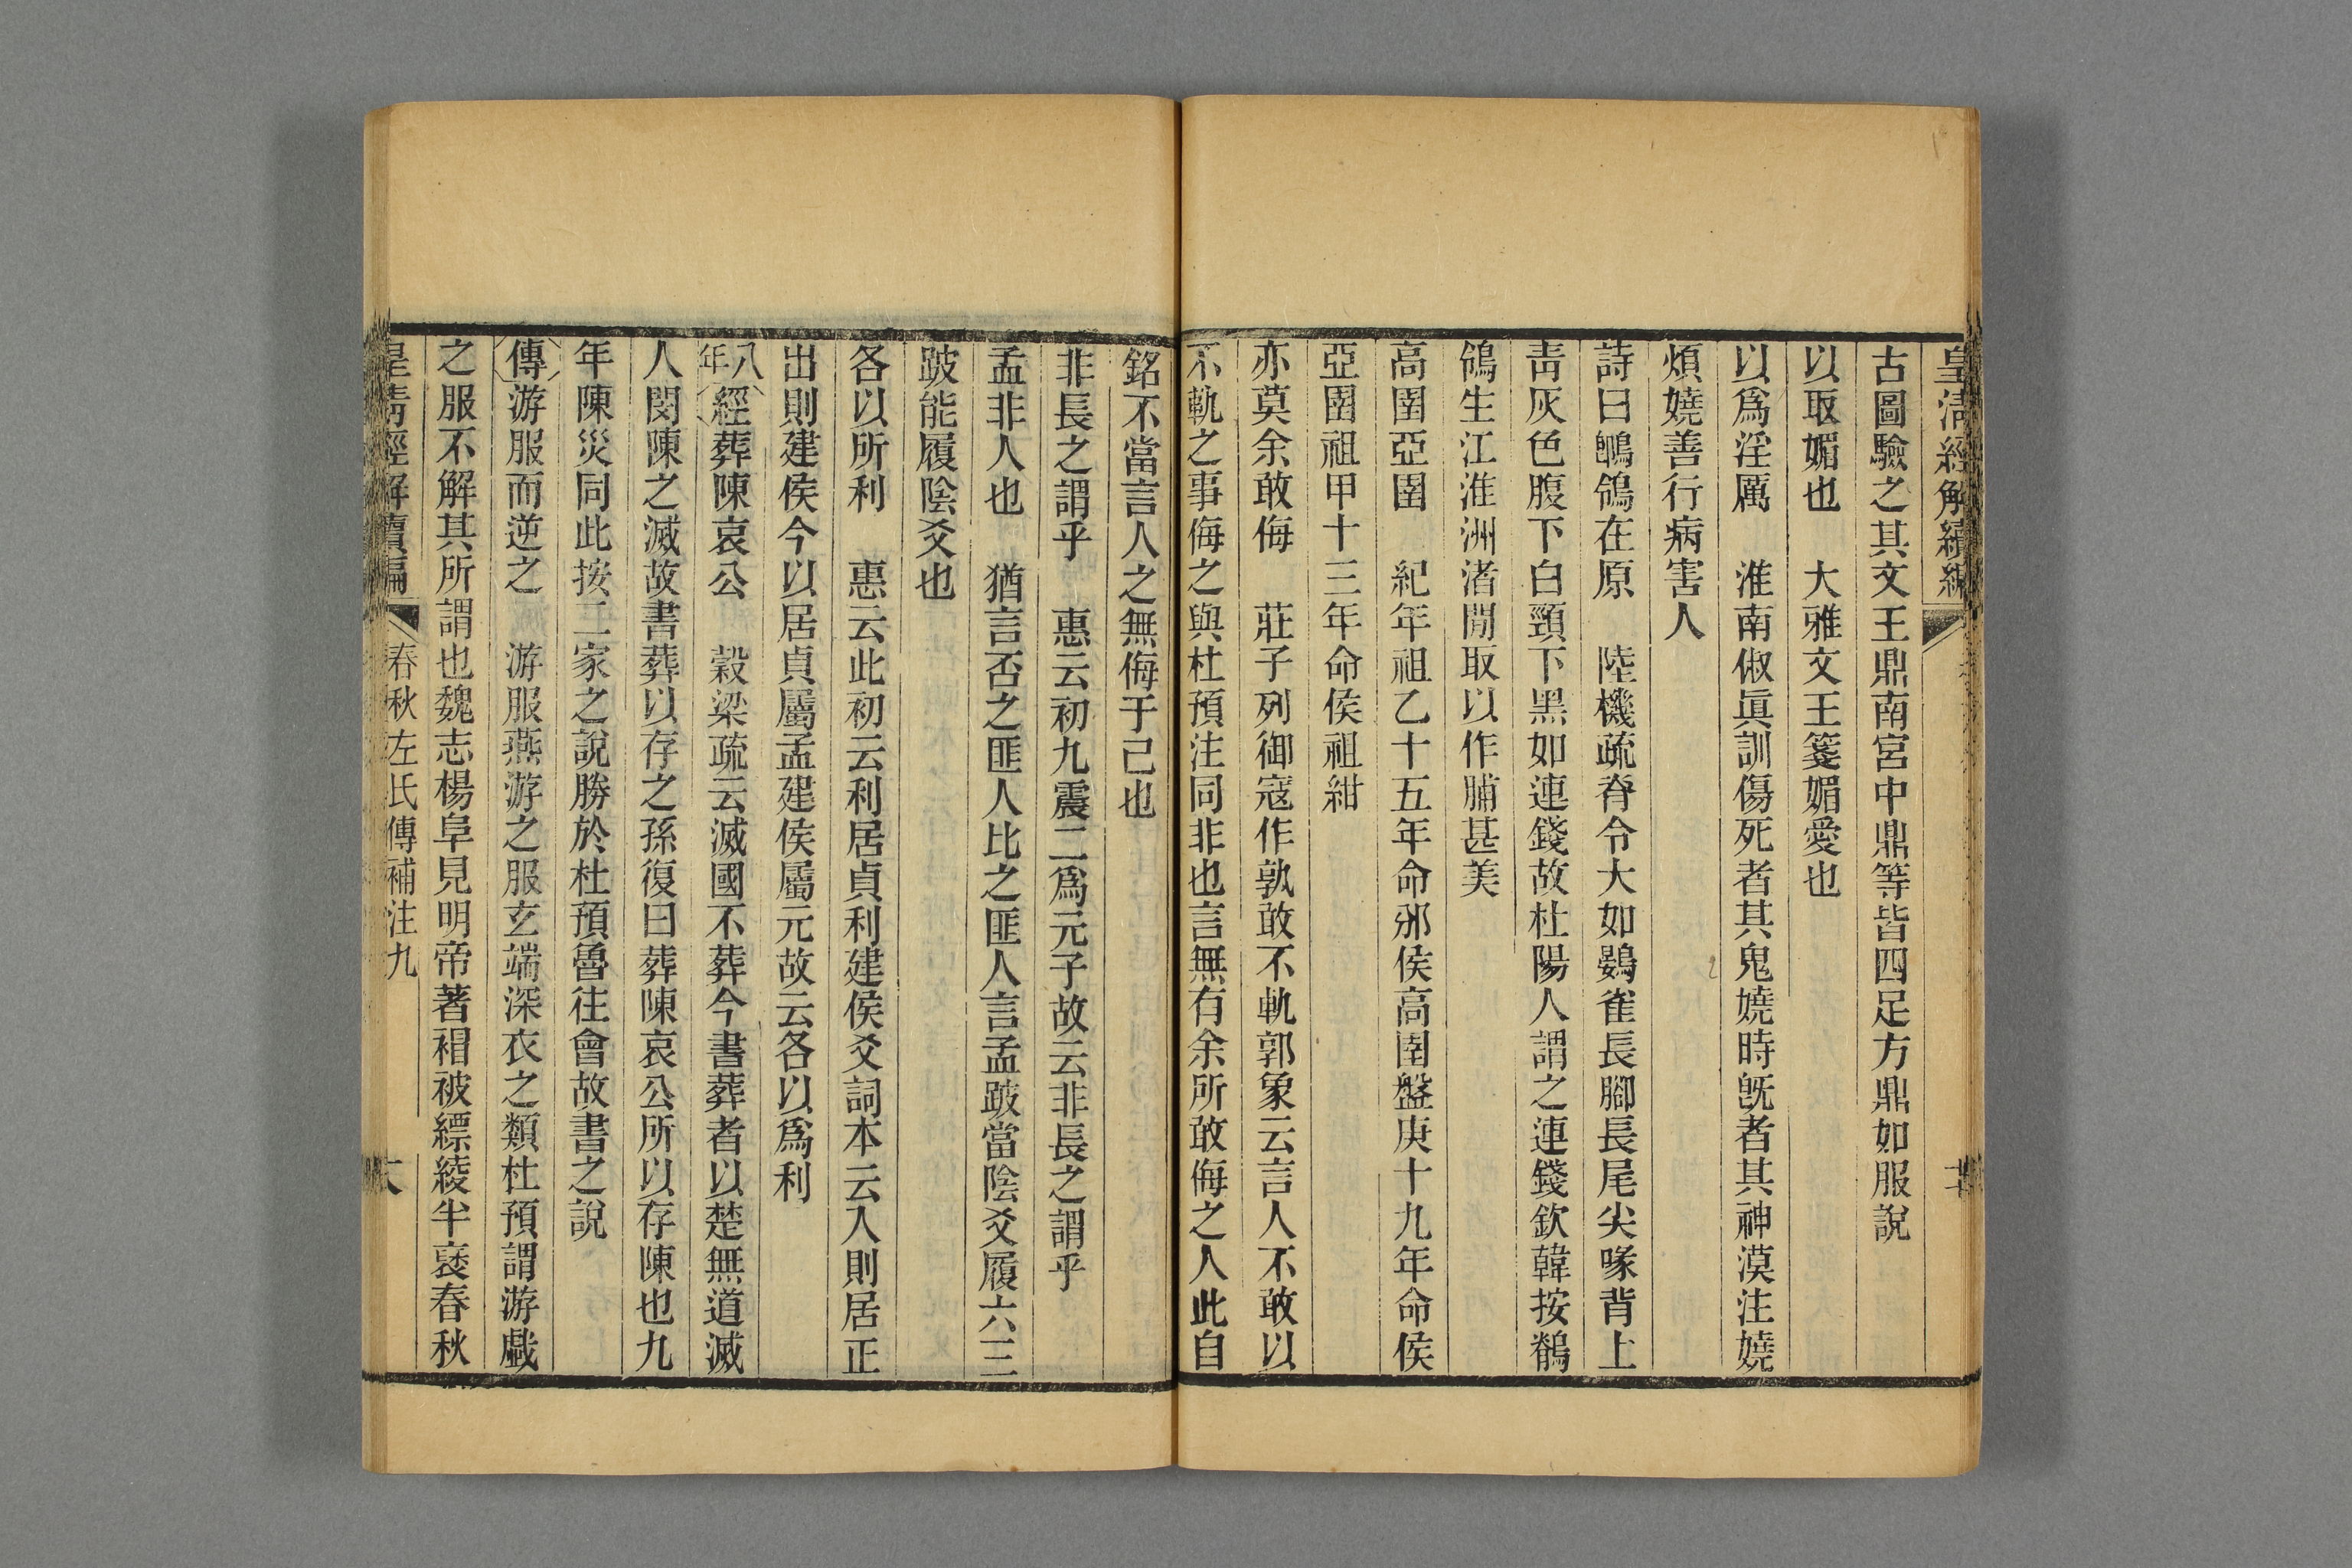 皇淸經解續編
古圖驗之其文王鼎南宮中鼎等皆四足方鼎如服說
以取媚也　大雅文王箋媚愛也
以爲淫厲　淮南俶眞訓傷死者其鬼嬈時旣者其神漠注嬈
煩嬈善行病害人
詩曰鶺鴒在原　陸機疏脊令大如鷃雀長腳長尾尖喙背上
靑灰色腹下白頸下黑如連錢故杜陽人謂之連錢欽韓按鶺
鴒生江淮洲渚閒取以作脯甚美
高圉亞圉　紀年祖乙十五年命邠侯高圉盤庚十九年命侯
亞圉祖甲十三年命侯祖紺
亦莫余敢侮　莊子列御寇作孰敢不軌郭象云言人不敢以
不軌之事侮之與杜預注同非也言無有余所敢侮之人此自
銘不當言人之無侮于己也
非長之謂乎　惠云初九震二爲元子故云非長之謂乎
孟非人也　猶言否之匪人比之匪人言孟跛當陰爻履六三
跛能履陰爻也
各以所利　惠云此初云利居貞利建侯爻詞本云入則居正
出則建侯今以居貞屬孟建侯屬元故云各以爲利
八年經葬陳哀公　穀梁疏云滅國不葬今書葬者以楚無道滅
人閔陳之滅故書葬以存之孫復曰葬陳哀公所以存陳也九
年陳災同此按二家之說勝於杜預魯往會故書之說
傳游服而逆之　游服燕游之服玄端深衣之類杜預謂游戲
之服不解其所謂也魏志楊阜見明帝著䙓被縹綾半褎春秋
皇淸經解續編　春秋左氏傳補注九